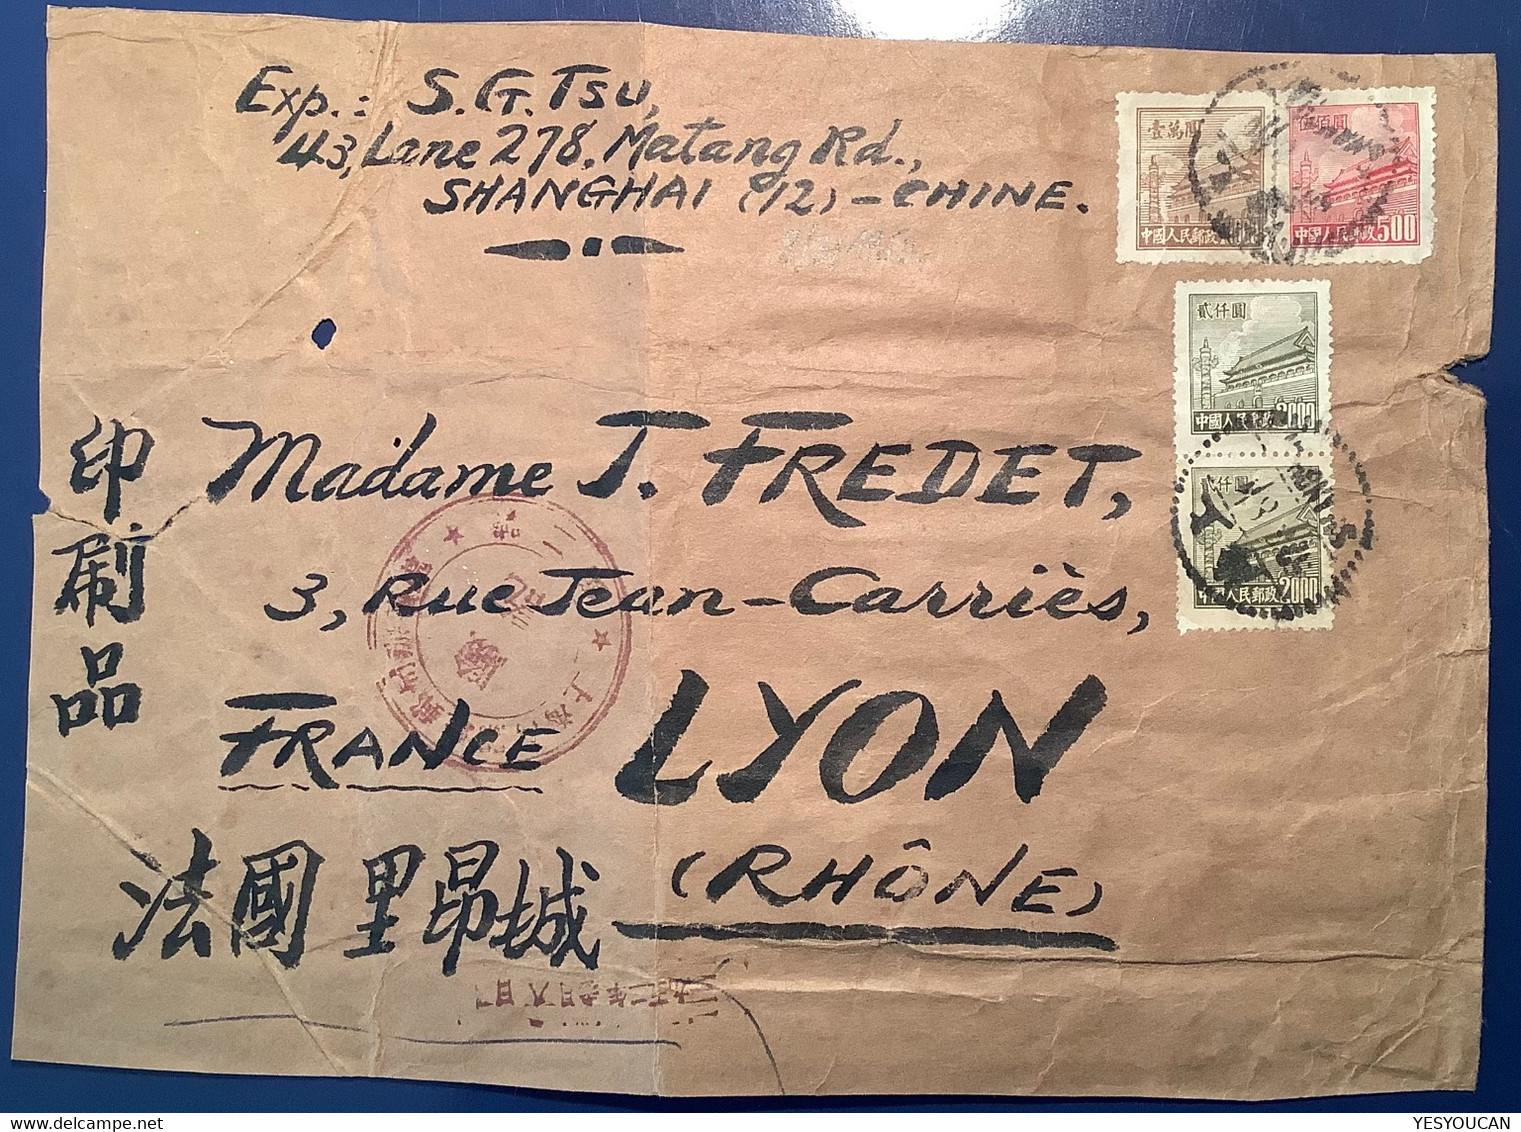 Exp.: S. G. Tsu,
43, Lane 278, Matang Rd.,
SHANGHAI (12) – CHINE.
壹萬圓
中國人民郵政
伍佰圓
中國人民郵政 500
貳仟圓
中國人民郵政 2000
貳仟圓
中國人民郵政 2000
印刷品
Madame J. FREDET,
3, Rue Jean-Carriès,
FRANCE LYON
(RHÔNE)
法國里昂城
YESYOUCAN